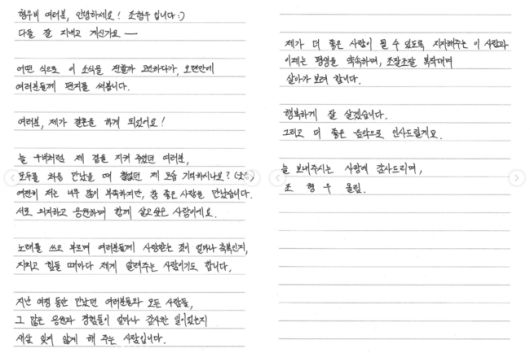 형우네 여러분, 안녕하세요! 조형우 입니다 :)
다들 잘 지내고 계신가요 —
어떤 식으로 이 소식을 전할까 고민하다가, 오랜만에
여러분들께 편지를 써봅니다.
여러분, 제가 결혼을 하게 되었어요!
늘 우네처럼 제 곁을 지켜 주었던 여러분,
모두를 처음 만났을 때 철없던 제 모습 기억하시나요?
여전히 저는 너무 많이 부족하지만, 참 좋은 사람을 만났습니다.
서로 의지하고 응원하며 함께 살고싶은 사람이에요.
노래를 쓰고 부르며 여러분들께 사랑받는 것이 얼마나 축복인지,
지치고 힘들 때마다 제게 알려주는 사람이기도 합니다.
지난 여정 동안 만났던 여러분들과 모든 사람들,
그 많은 응원과 경험들이 얼마나 감사한 일이었는지
새삼 잊지 않게 해 주는 사람입니다.
제가 더 좋은 사람이 될 수 있도록 지지해주는 이 사람과
이제는 평생을 약속하며, 조잘조잘 복작대며
살아가 보려 합니다.
행복하게 잘 살겠습니다.
그리고 더 좋은 음악으로 인사드릴게요.
늘 보내주시는 사랑에 감사드리며,
조 형 우 올림.